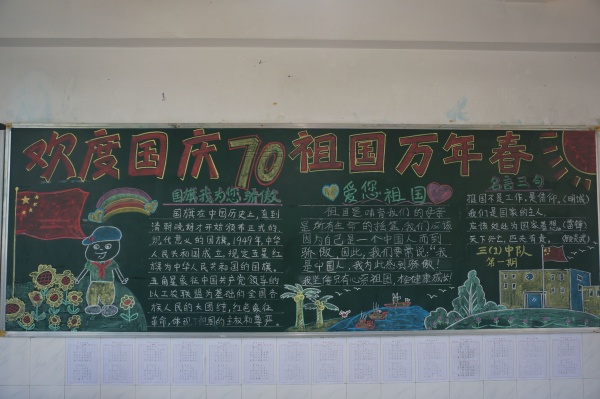 欢度国庆70祖国万年春
国旗我为您骄傲
国旗在中国历史上,直到
清朝晚期才开始颁布正式的,
现代意义的国旗。1949年中华
人民共和国成立,规定五星红
旗为中华人民共和国的国旗。
五角星象征中国共产党领导的
以工农联盟为基础的全国各
族人民的大团结,红色象征
革命,体现了祖国的主权和尊严。
爱您祖国
祖国是哺育我们的母亲
是所有生命的摇篮,我们应该
因为自己是一个中国人而到
骄傲,因此,我们要常说:“我
是中国人,我为此感到骄傲!
我坚信
健康成长!
名言三句
祖国不是工作,是信仰。
我们是国家的主人,
应该处处为国家着想。(雷锋)
天下兴亡,匹夫有责。
三(2)中队
第一期